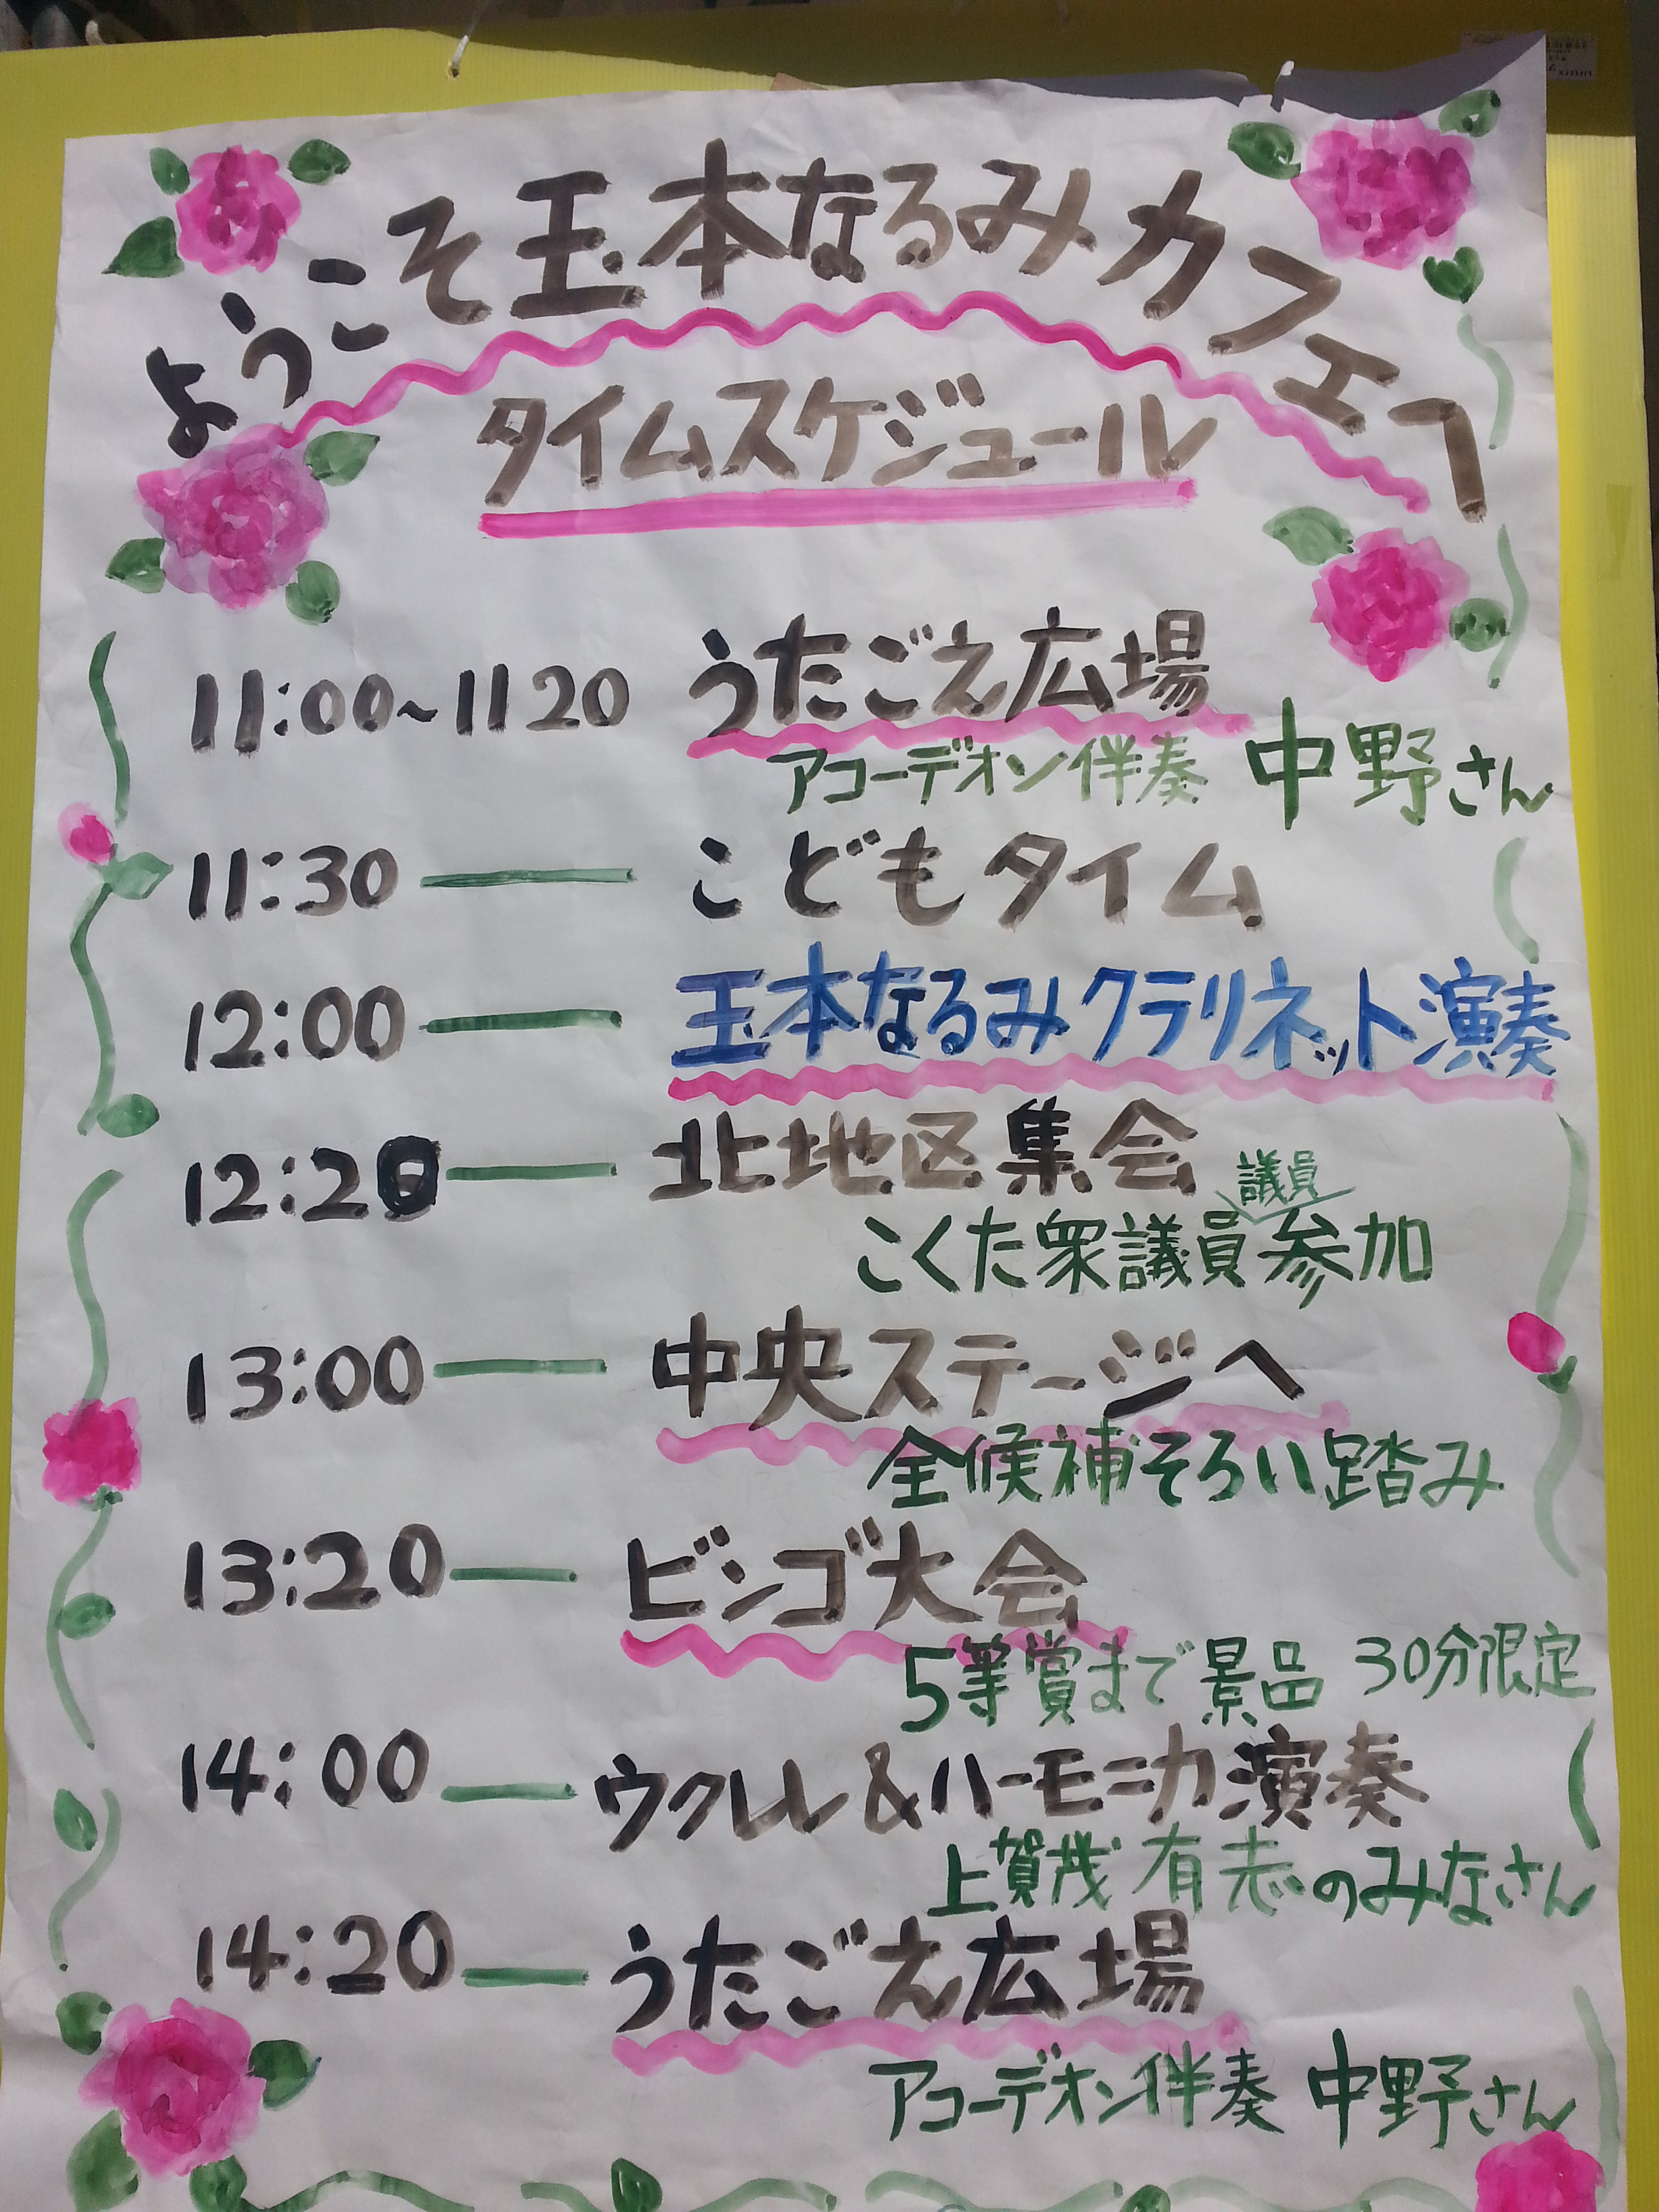 ようこそ玉本なるみカフェへ
タイムスケジュール
11:00~1120 うたごえ広場
アコーデオン伴奏 中野さん
11:30 こどもタイム
12:00 玉本なるみクラリネット演奏
12:20 北地区集会
議員
こくた衆議員参加
13:00 中央ステージへ
全候補そろい踏み
13:20 ビンゴ大会
5等賞まで景品 30分限定
14:00 ウクレレ&ハーモニカ演奏
上賀茂 有志のみなさん
14:20 うたごえ広場
アコーデオン伴奏 中野さん